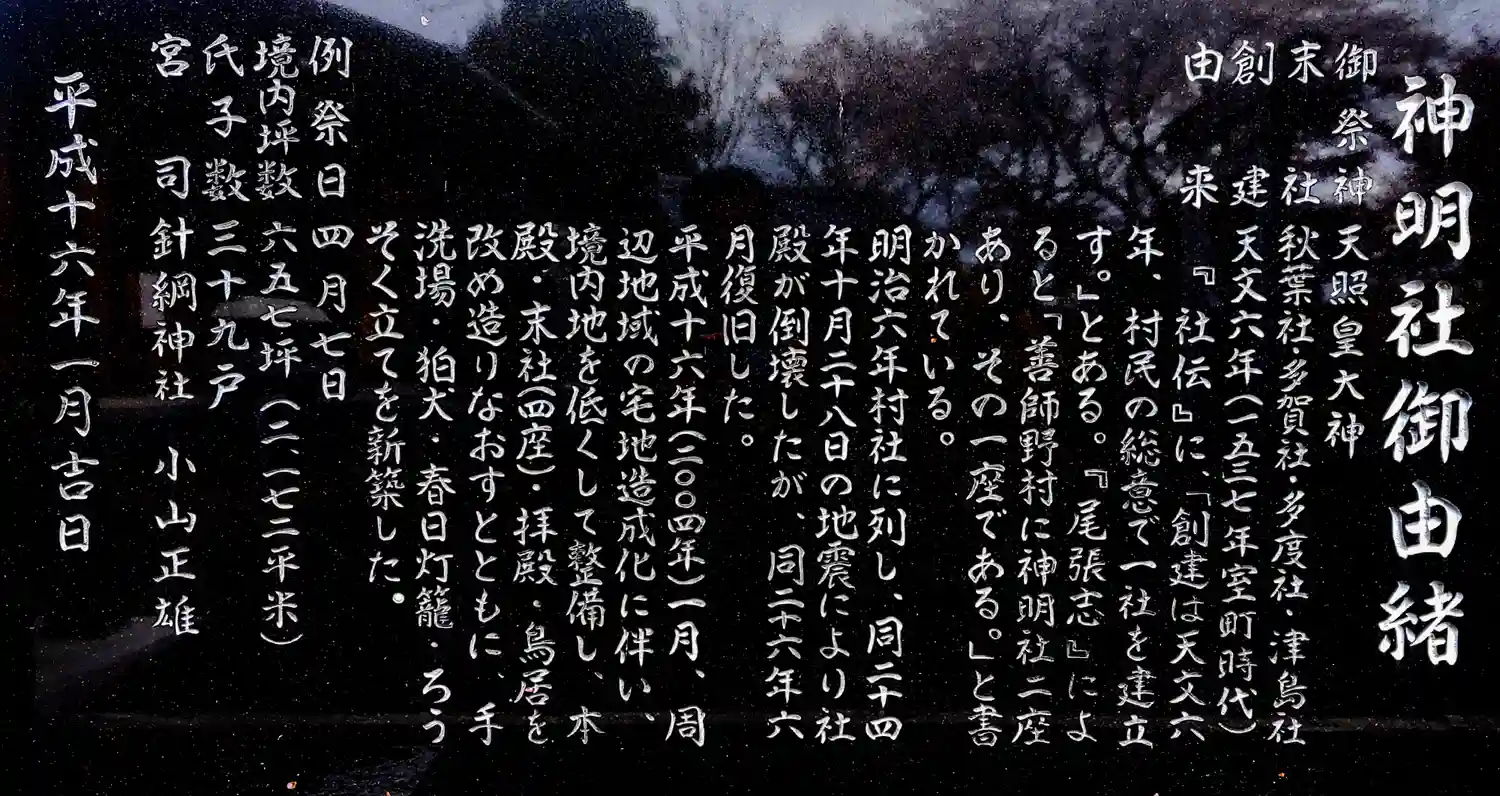 神明社御由緒
御祭神 天照皇大神
末社 秋葉社・多賀社・多度社・津島社
創建 天文六年(一五三七年室町時代)
由来 『社伝』に、「創建は天文六
年、村民の総意で一社を建立
す。」とある。『尾張志』によ
ると「善師野村に神明社二座
あり、その一座である。」と書
かれている。
明治六年村社に列し、同二十四
年十月二十八日の地震により社
殿が倒壊したが、同二十六年六
月復旧した。
平成十六年(二〇〇四年)一月、周
辺地域の宅地造成化に伴い、
境内地を低くして整備し、本
殿・末社(四座)・拝殿・鳥居を
改め造りなおすとともに、手
洗場・狛犬・春日灯籠・ろう
そく立てを新築した。
例祭日 四月七日
境内坪数 六五七坪(二、一七二平米)
氏子数 三十九戸
宮司 針綱神社 小山正雄
平成十六年一月吉日